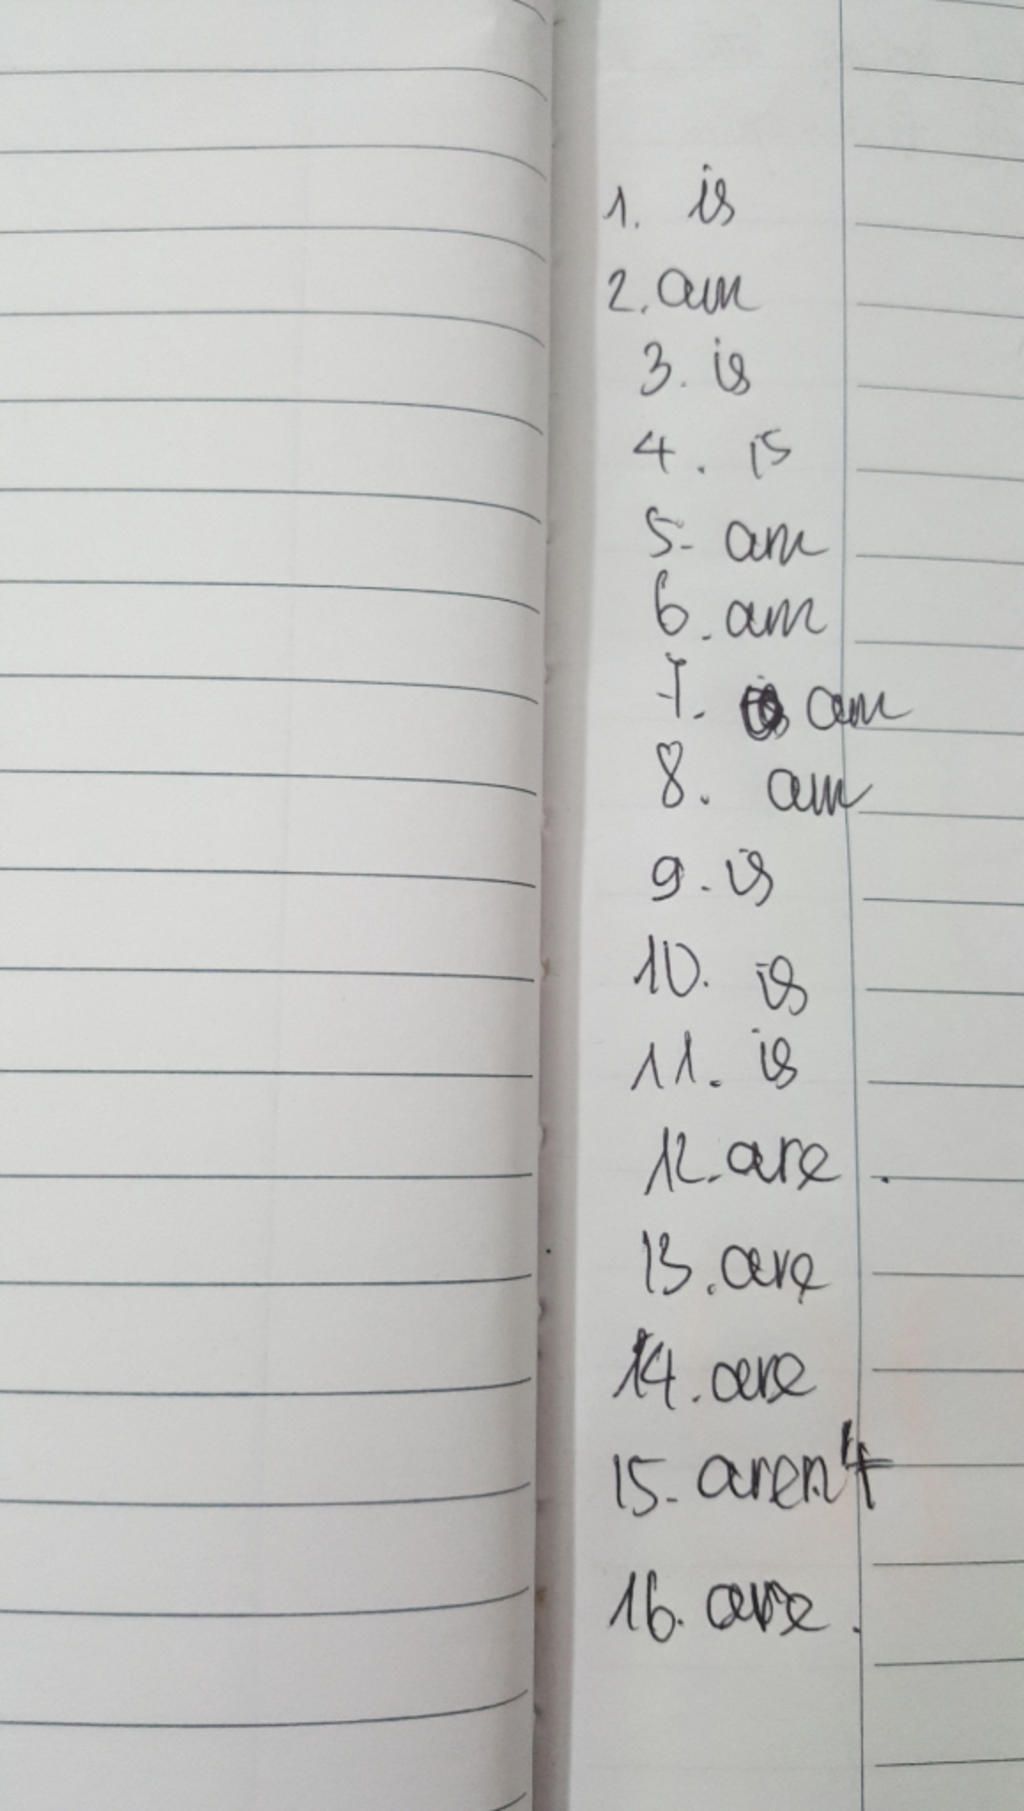 1. is
2. am
3. is
4. is
5. am
6. am
7. am
8. am
9. is
10. is
11. is
12. are.
13. are
14. are
15. aren't
16. are.